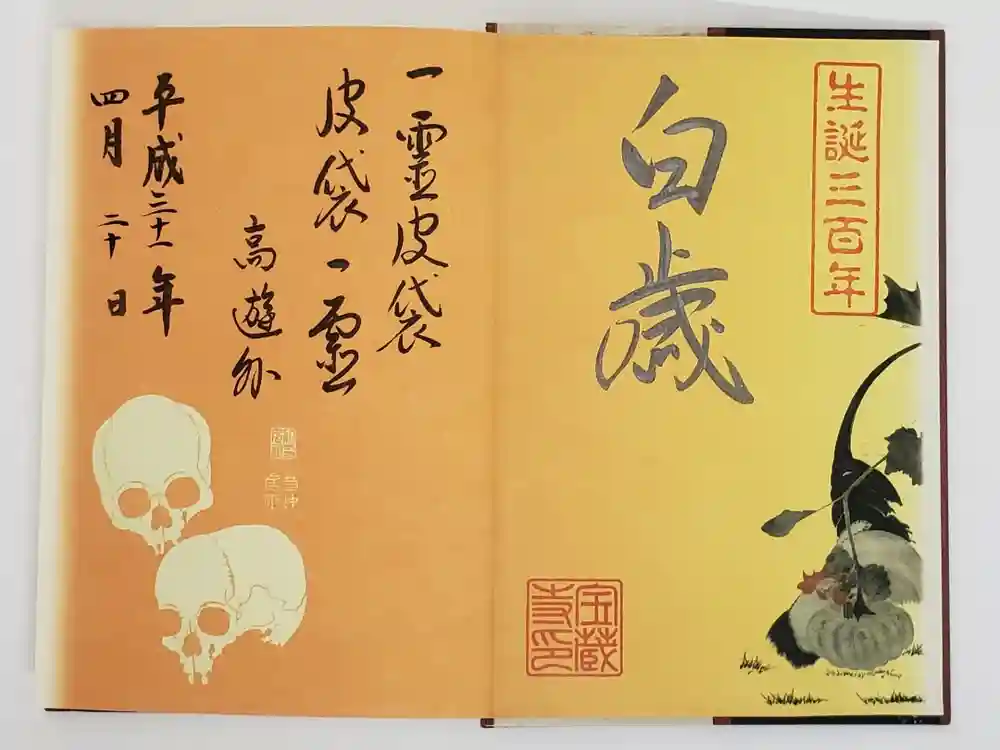 生誕三百年
白歳
宝蔵
寺印
一霊皮袋
皮袋一霊
高遊外
平成三十一年
四月 二十日